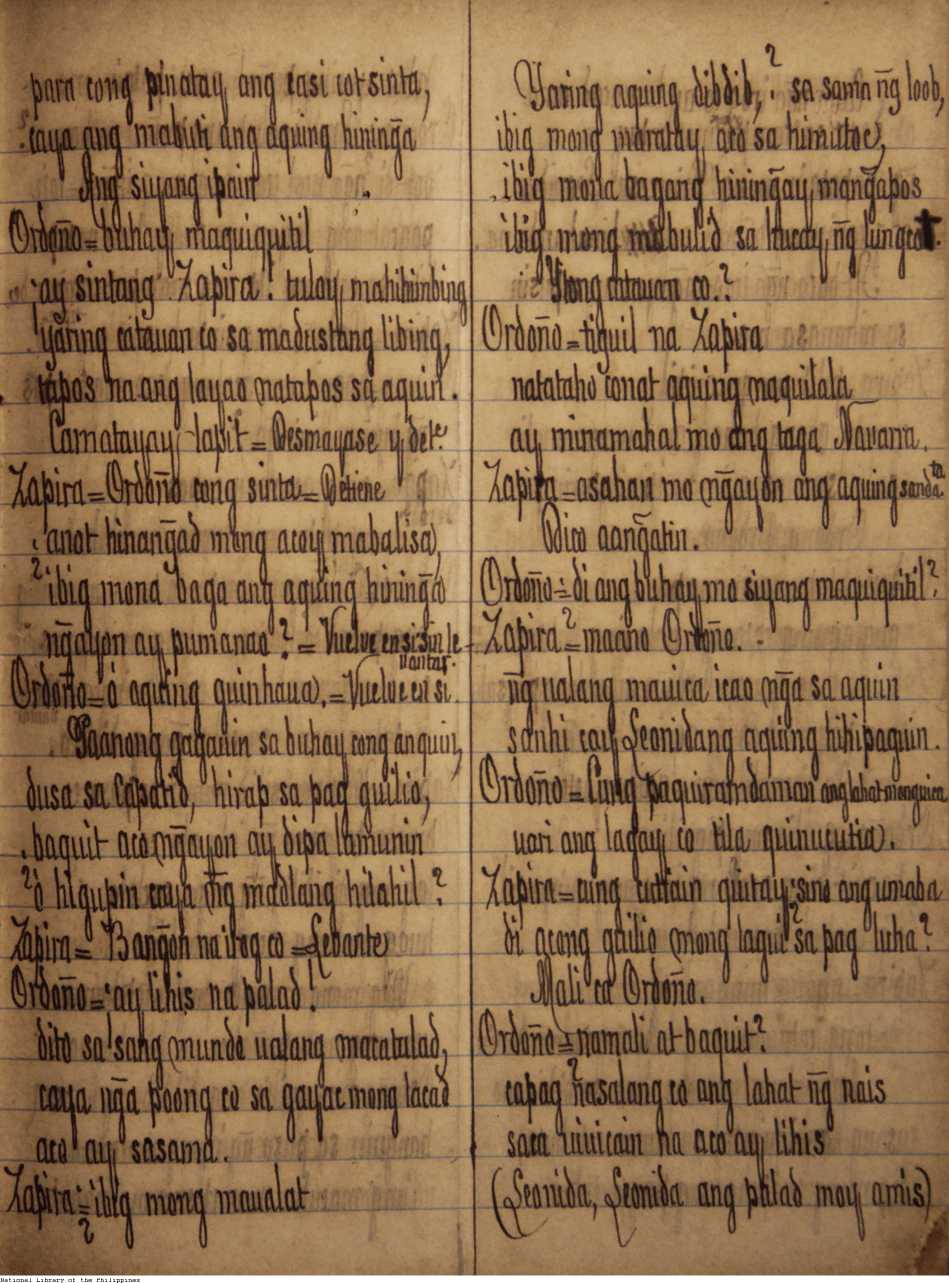 para cong pinatay ang casi cot sinta,
caya ang mabuti ang aquing hiningã
Ang siyang ipain
Ordoño = buhay maquiquitil
ay sintang Zapira! tuloy mahihimbing
yaring catauan co sa madustang libing,
tapos na ang layao natapos sa aquin.
Camatayay lapit = Desmayase y dete
Zapira = Ordoño cong sinta = Detiene
anot hinangãd mong acoy mabalisa,
? ibig mona baga ang aquing hiningã
ngãyon ay pumanao? = Vuelve en si sin le-
vantar.
Ordoño = ó aquing guinhaua. = Vuelve en si.
Paanong gagauin sa buhay cong anquin,
dusa sa Capatid, hirap sa pag guilio,
baquit aco ngãyon ay dipa lamunin
? ò higupin caya ng̃ madlang hilahil?
Zapira = Bangõn na irog co = Levante
Ordoño = ay lihis na palad!
dito sa sang mundo ualang macatulad,
caya ngã poong co sa gayac mong lacad
aco ay sasama.
Zapira = ? ibig mong maualat
Yaring aquing dibdib, ? sa sama ng̃ loob,
ibig mong maratay aco sa himutoc,
ibig mona bagang hiningãy mangãpos
ibig mong mabulid sa hucay ng̃ lungcot.
Ytong catauan co.?
Ordoño = tiguil na Zapira
natataho conat aquing naquilala
ay minamahal mo ang taga Navarra.
Zapira = asahan mo ngãyon ang aquing sandata
Dico aangãtin.
Ordoño = di ang buhay mo siyang maquiquitil?
Zapira = ? maano Ordoño.
ng̃ ualang mauica icao ngã sa aquin
sanhi cay Leonidang aquing hihipaguin.
Ordoño = Cung paquiramdaman ang lahat mong uica
uari ang lagay co tila quinucutia.
Zapira = cung tuttain quitay, sino ang umaba
di acong guilio mong lagui sa pag luha?
Mali ca Ordoño.
Ordoño = namali at baquit?
capag nasalang co ang lahat ng̃ nais
saca uiuicain na aco ay lihis
(Leonida, Leonida ang palad moy amis)
National Library of the Philippines